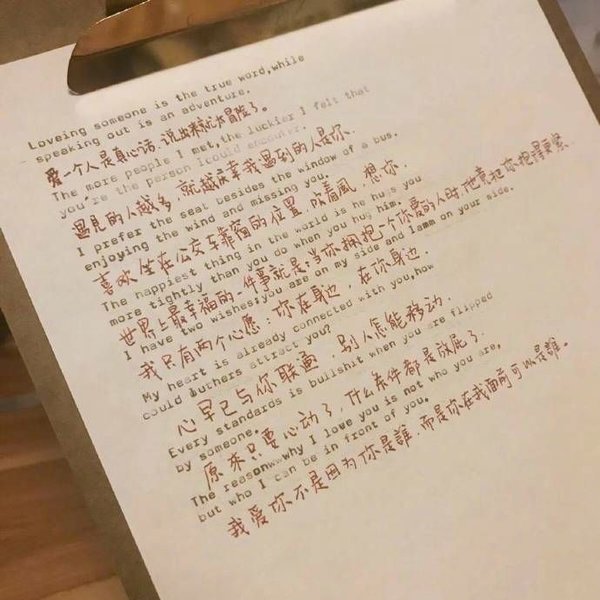 Loveing someone is the true word,while
speaking out is an adventure.
爱一个人是真心话,说出来就是大冒险了。
The more people I met,the luckier I felt that
you're the person I could encounter.
遇见的人越多,就越庆幸我遇到的人是你.
I prefer the seat besides the window of a bus.
enjoying the wind and missing you.
喜欢坐在公交车靠窗的位置,吹着風,想你.
The happiest thing in the world is he hugs you
more tightly than you do when you hug him.
世界上最幸福的一件事就是:当你拥抱一个你爱的人时,他竟把你抱得更紧.
I have two wishes:you are on my side and Iamm on your side.
我只有两个心愿:你在身边,在你身边.
My heart is already connected with you,how
could outhers attract you?
心早已与你联通,别人怎能移动.
Every standards is bullshit when you are flipped
by someone.
原来只要心动了,什么条件都是放屁了.
The reasonwwwhy I love you is not who you are,
but who I can be in front of you.
我爱你不是因为你是誰,而是你在我面前可以是誰.